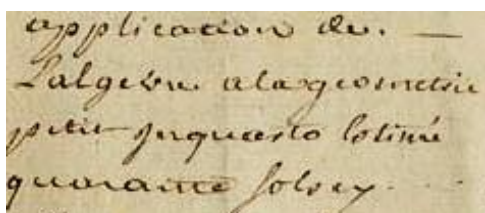 application de. —
Lalgebre alageometrie
petit Inquarto Estimé
quarante Sols cy. .